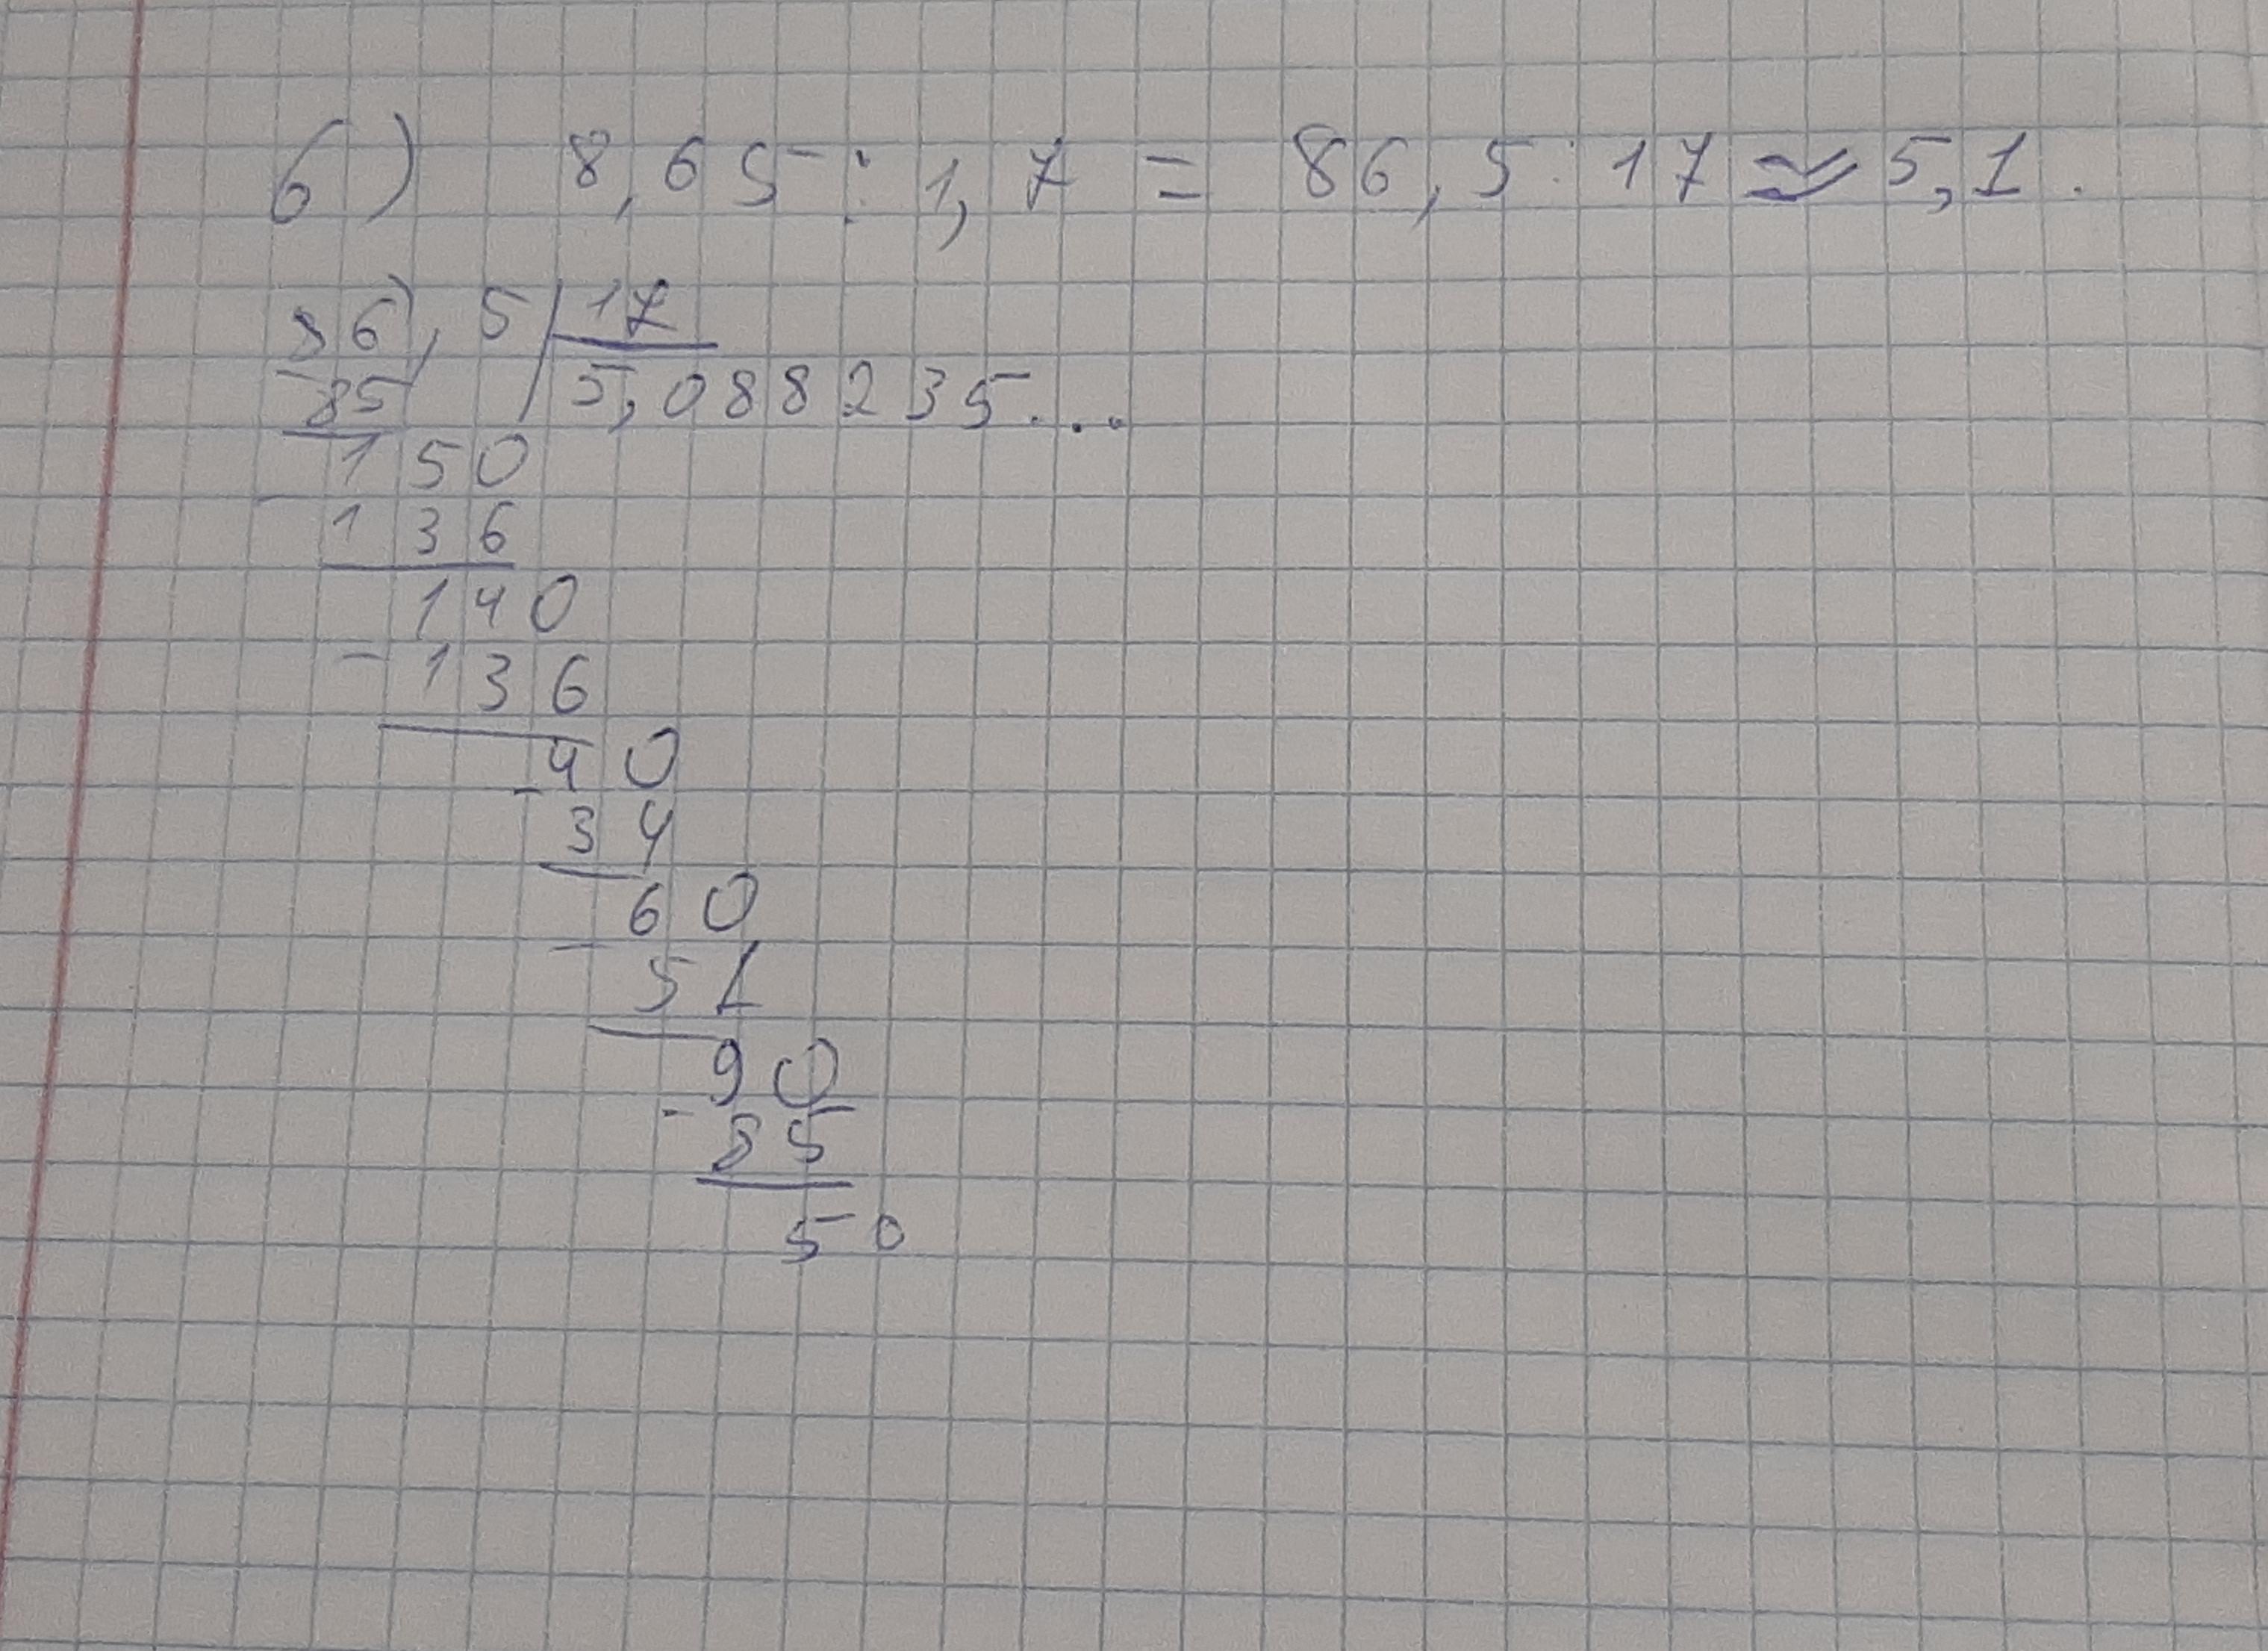 б) 8,65 : 1,7 = 86,5 : 17 ≈ 5,1.
86,5 | 17
- 85 | 5,088235...
150
- 136
140
- 136
40
- 34
60
- 51
90
- 85
50